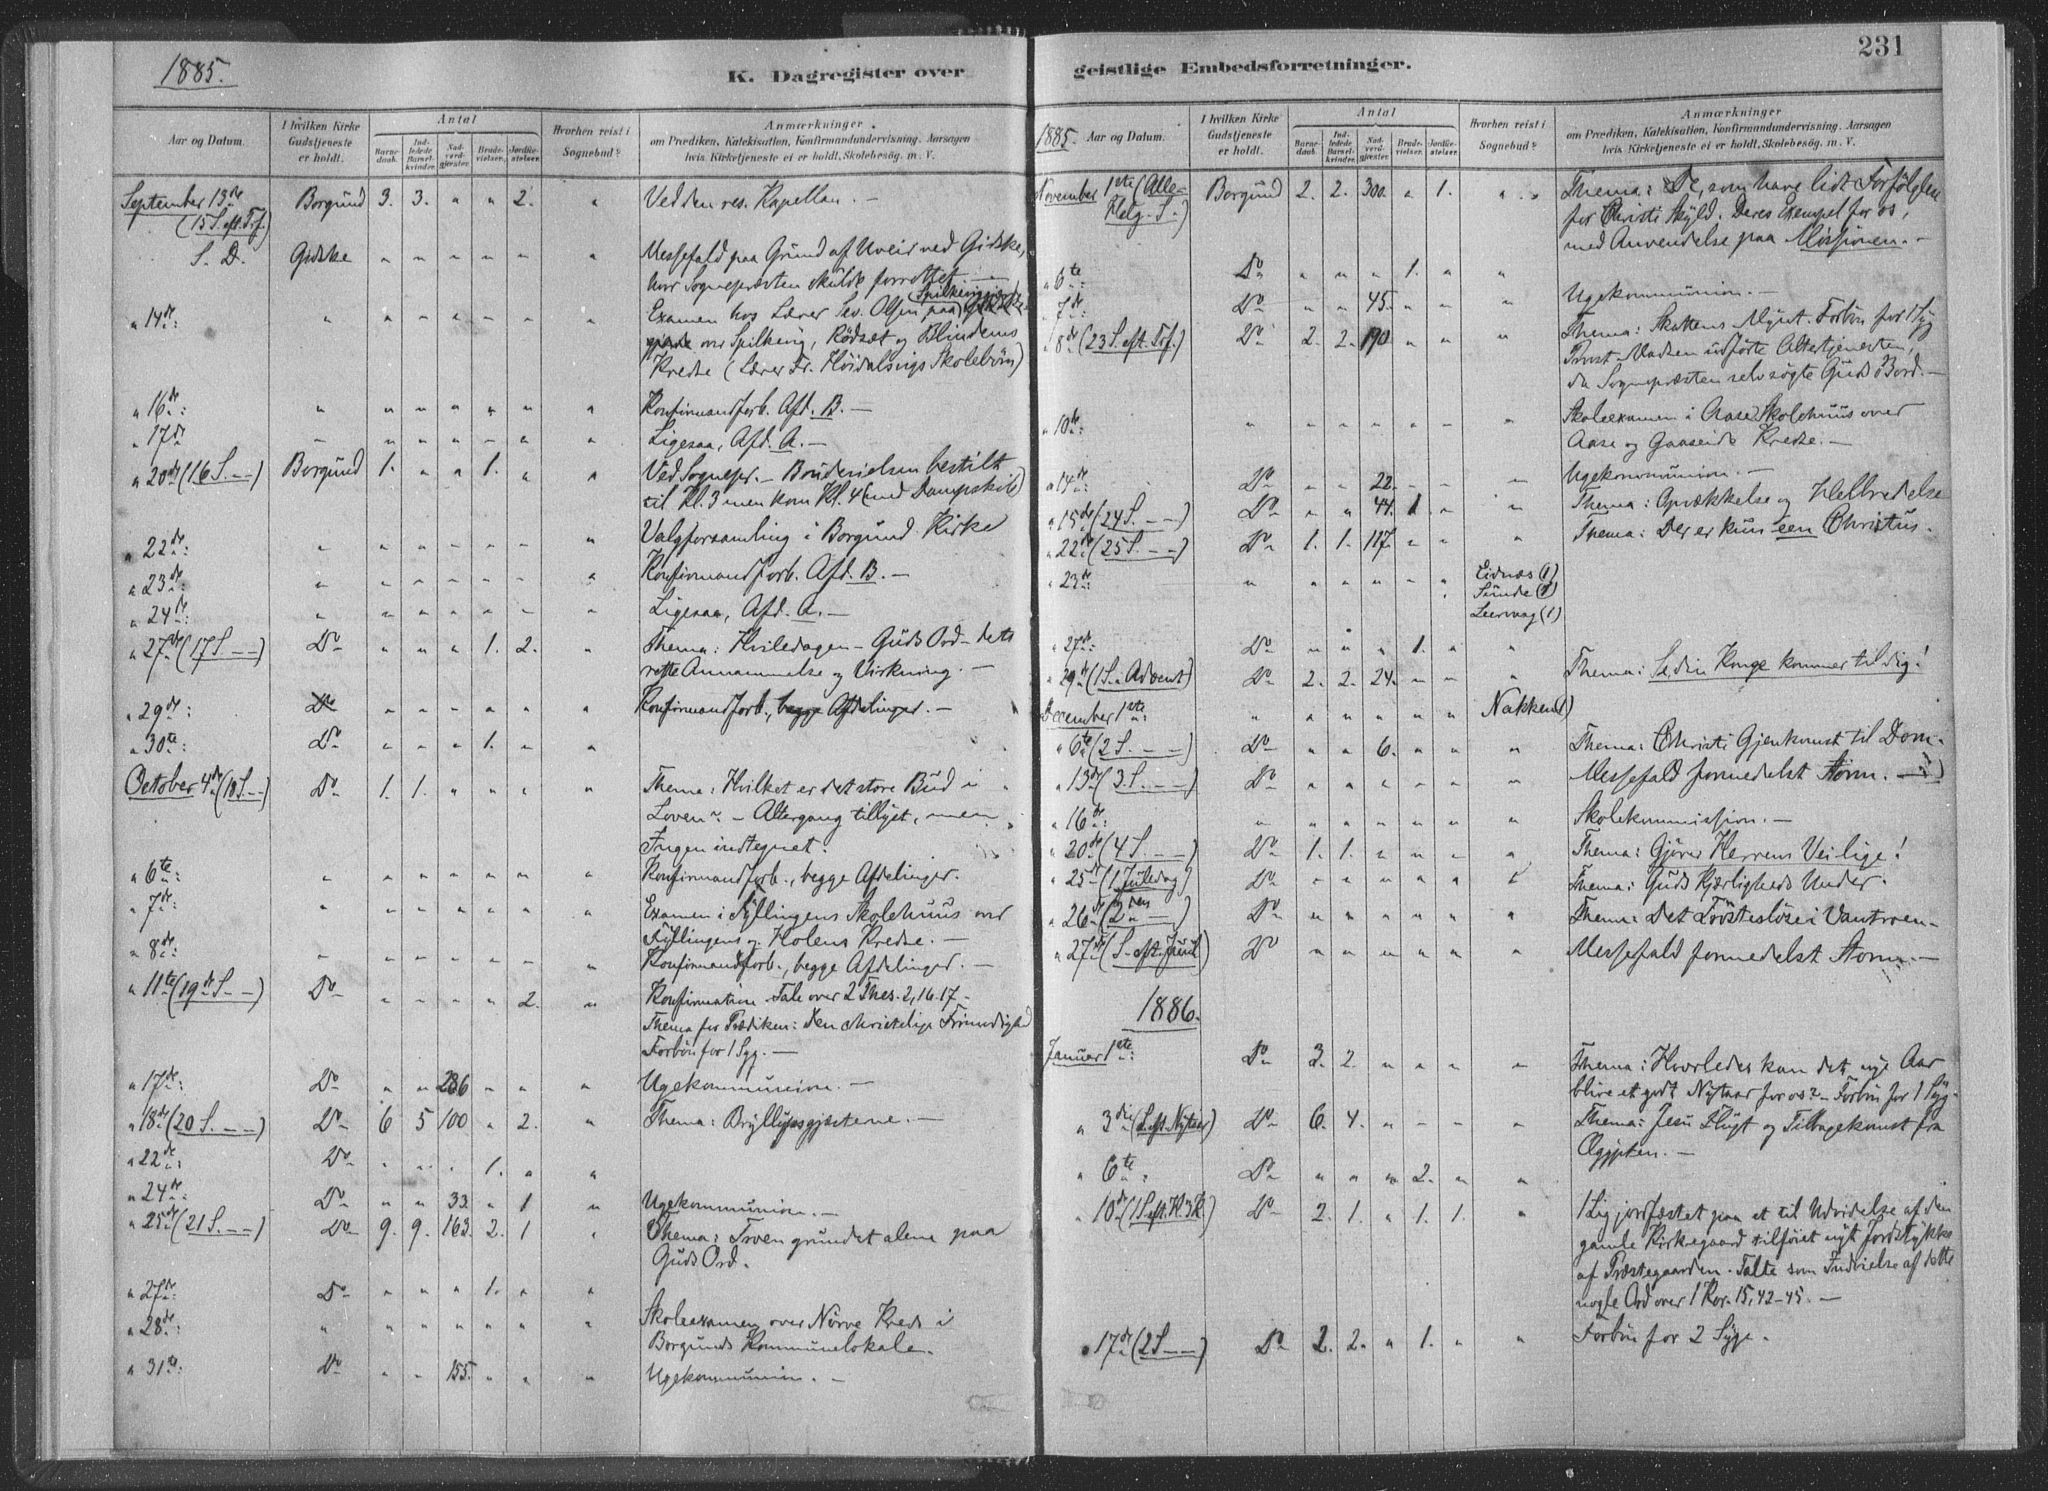 1885.
K. Dagregister over
Aar og Datum.
I hvilken Kirke Gudstjeneste er holdt.
Antal
Barnedaab.
Indledede Barselkvinder.
Nadverdgjester.
Brudevielser.
Jordfæstelser.
Hvorhen reist i Sognebud?
Anmærkninger
om Prædiken, Katekisation, Konfirmandundervisning. Aarsagen
hvis Kirketjeneste ei er holdt, Skolebesøg. m. V.
September 13de Borgund 3. 3. " " 2. " Ved den res. Kapellan. —
(15 S. eft. Trf.)
S. D. Gidske " " " " " " Messefald paa Grund af Uveir ved Gidske,
hvor Sognepræsten skulde forrettet —
" 14de: " " " " " " " Examen hos Lærer Sev. Olsen paa Spilkeving
over Spilkeving, Rödsæt og Blindems
Kredse (Lærer Fr. Höidalsvigs Skolebörn)
" 16de: " " " " " " " Konfirmandforb. Afd. B. —
" 17de " " " " " " " Ligesaa, Afd. A. —
" 20de (16 S. — —) Borgund 1. " " 1. " " Ved Sognepr. — Brudevielsen bestilt
til Kl. 3 men kom Kl. 4 (med Dampskib)
" 22de: " " " " " " " Valgforsamling i Borgund Kirke
" 23de " " " " " " " Konfirmandforb. Afd. B. —
" 24de: " " " " " " " Ligesaa, Afd. A. —
" 27de (17 S. — —) Do " " " 1. 2. " Thema: Hviledagen — Guds Ord — dets
rette Annammelse og Virkning. —
" 29de: Do " " " " " " Konfirmandforb., begge Afdelinger. —
" 30te: Do " " " 1. " "
October 4de (18 S. —) Do 1. 1. " " " " Thema: Hvilket er det store Bud i
Loven? — Altergang tillyst, men
Ingen indtegnet.
" 6te: " " " " " " " Konfirmandforb., begge Afdelinger.
" 7de: " " " " " " " Examen i Fyllingens Skolehuus over
Fyllingens og Holens Kredse. —
" 8de: " " " " " " " Konfirmandforb., begge Afdelinger. —
" 11te (19de S. — —) Do " " " " 2. " Konfirmation. Tale over 2 Thes. 2, 16. 17.
Thema for Prædiken: Den christelige Frimodighed
Forbön for 1 Syg. —
" 17de: Do " " 286 " " " Ugekommunion. —
" 18de (20 S. — —) Do 6 5 100 " 2. " Thema: Bryllupsgjæsterne. —
" 22de: Do " " " 1. " "
" 24de: Do " " 33. " 1 " Ugekommunion. —
" 25de (21 S. — —) Do 9. 9. 163. 2. 1 " Thema: Troen grundet alene paa
Guds Ord.
" 27de: Do " " " 1. " "
" 28de: " " " " " " " Skoleexamen over Nörve Kreds i
Borgunds Kommunelokale.
" 31te: Do " " 155. " " " Ugekommunion. —
231
geistlige Embedsforretninger.
1885.
Aar og Datum.
I hvilken Kirke Gudstjeneste er holdt.
Antal
Barnedaab.
Indledede Barselkvinder.
Nadverdgjester.
Brudevielser.
Jordfæstelser.
Hvorhen reist i Sognebud?
Anmærkninger
om Prædiken, Katekisation, Konfirmandundervisning. Aarsagen
hvis Kirketjeneste ei er holdt, Skolebesøg. m. V.
November 1ste (Alle- Borgund 2. 2. 300. " 1. " Thema: De, som have lidt Forfölgelse
Helg. S.) for Christi Skyld. Deres Exempel for os,
med Anvendelse paa Missionen. —
" 6te Do " " " 1. " "
" 7de: Do " " 45. " " " Ugekommunion. —
" 8de (23 S. eft. Trf.) Do 2. 2. 190. " " " Thema: Skattens Mynt. Forbön for 1 Syg
Provst Madsen udförte Altertjenesten,
da Sognepræsten selv sögte Guds Bord. —
" 10de: " " " " " " " Skoleexamen i Aase Skolehuus over
Aase og Gaaseids Kredse. —
" 14de: Do " " 22. " " " Ugekommunion. —
" 15de (24 S. — —) Do " " 44. 1. " " Thema: Opvækkelse og Helbredelse
" 22de (25 S. — —) Do 1. 1. 117. " " " Thema: Der er kun een Christus.
" 23de: " " " " " " Eidnæs (1)
Sunde (1)
Leervaag (1)
" 27de: Do " " " 1. " "
" 29de (1 S. i Advent) Do 2. 2. 24. " " " Thema: Se, din Konge kommer til dig!
December 1ste: " " " " " " Nakken (1)
" 6te (2 S. — —) Do " " 6. " " " Thema: Christi Gjenkomst til Dom.
" 13de (3. S. — —) Do " " " " " " Messefald formedelst Storm. —
" 16de: " " " " " " " Skolekommission. —
" 20de (4 S. — —) Do 1. 1. " " " " Thema: Gjörer Herrens Vei lige!
" 25de (1. Juledag) Do " " " " " " Thema: Guds Kjærligheds Under.
" 26de (2den —) Do " " " " " " Thema: Det Tröstesløse i Vantroen —
" 27de (S. eft. Juul) Do " " " " " " Messefald formedelst Storm. —
1886.
Januar 1ste: Do 3. 2. " " " " Thema: Hvorledes kan det nye Aar
blive et godt Nytaar for os? — Forbön for 1 Syg.
" 3die (S. eft. Nytaar) Do 6. 4. " " " " Thema: Jesu Flugt og Tilbagekomst fra
Ægypten. —
" 6te " Do " " " 2. " "
" 10de (1 S. eft. H 3 K) Do 2. 1. " 1. 1. " 1 Lig jordfæstet paa et til Udvidelse af den
gamle Kirkegaard tilföiet nyt Jordstykke
af Præstegaarden. Talte som Indvielse af dette
nogle Ord over 1 Kor. 15, 42—45. —
" 17de (2 S — —) Do 2. 2. " 1. " " Forbön for 2 Syge.